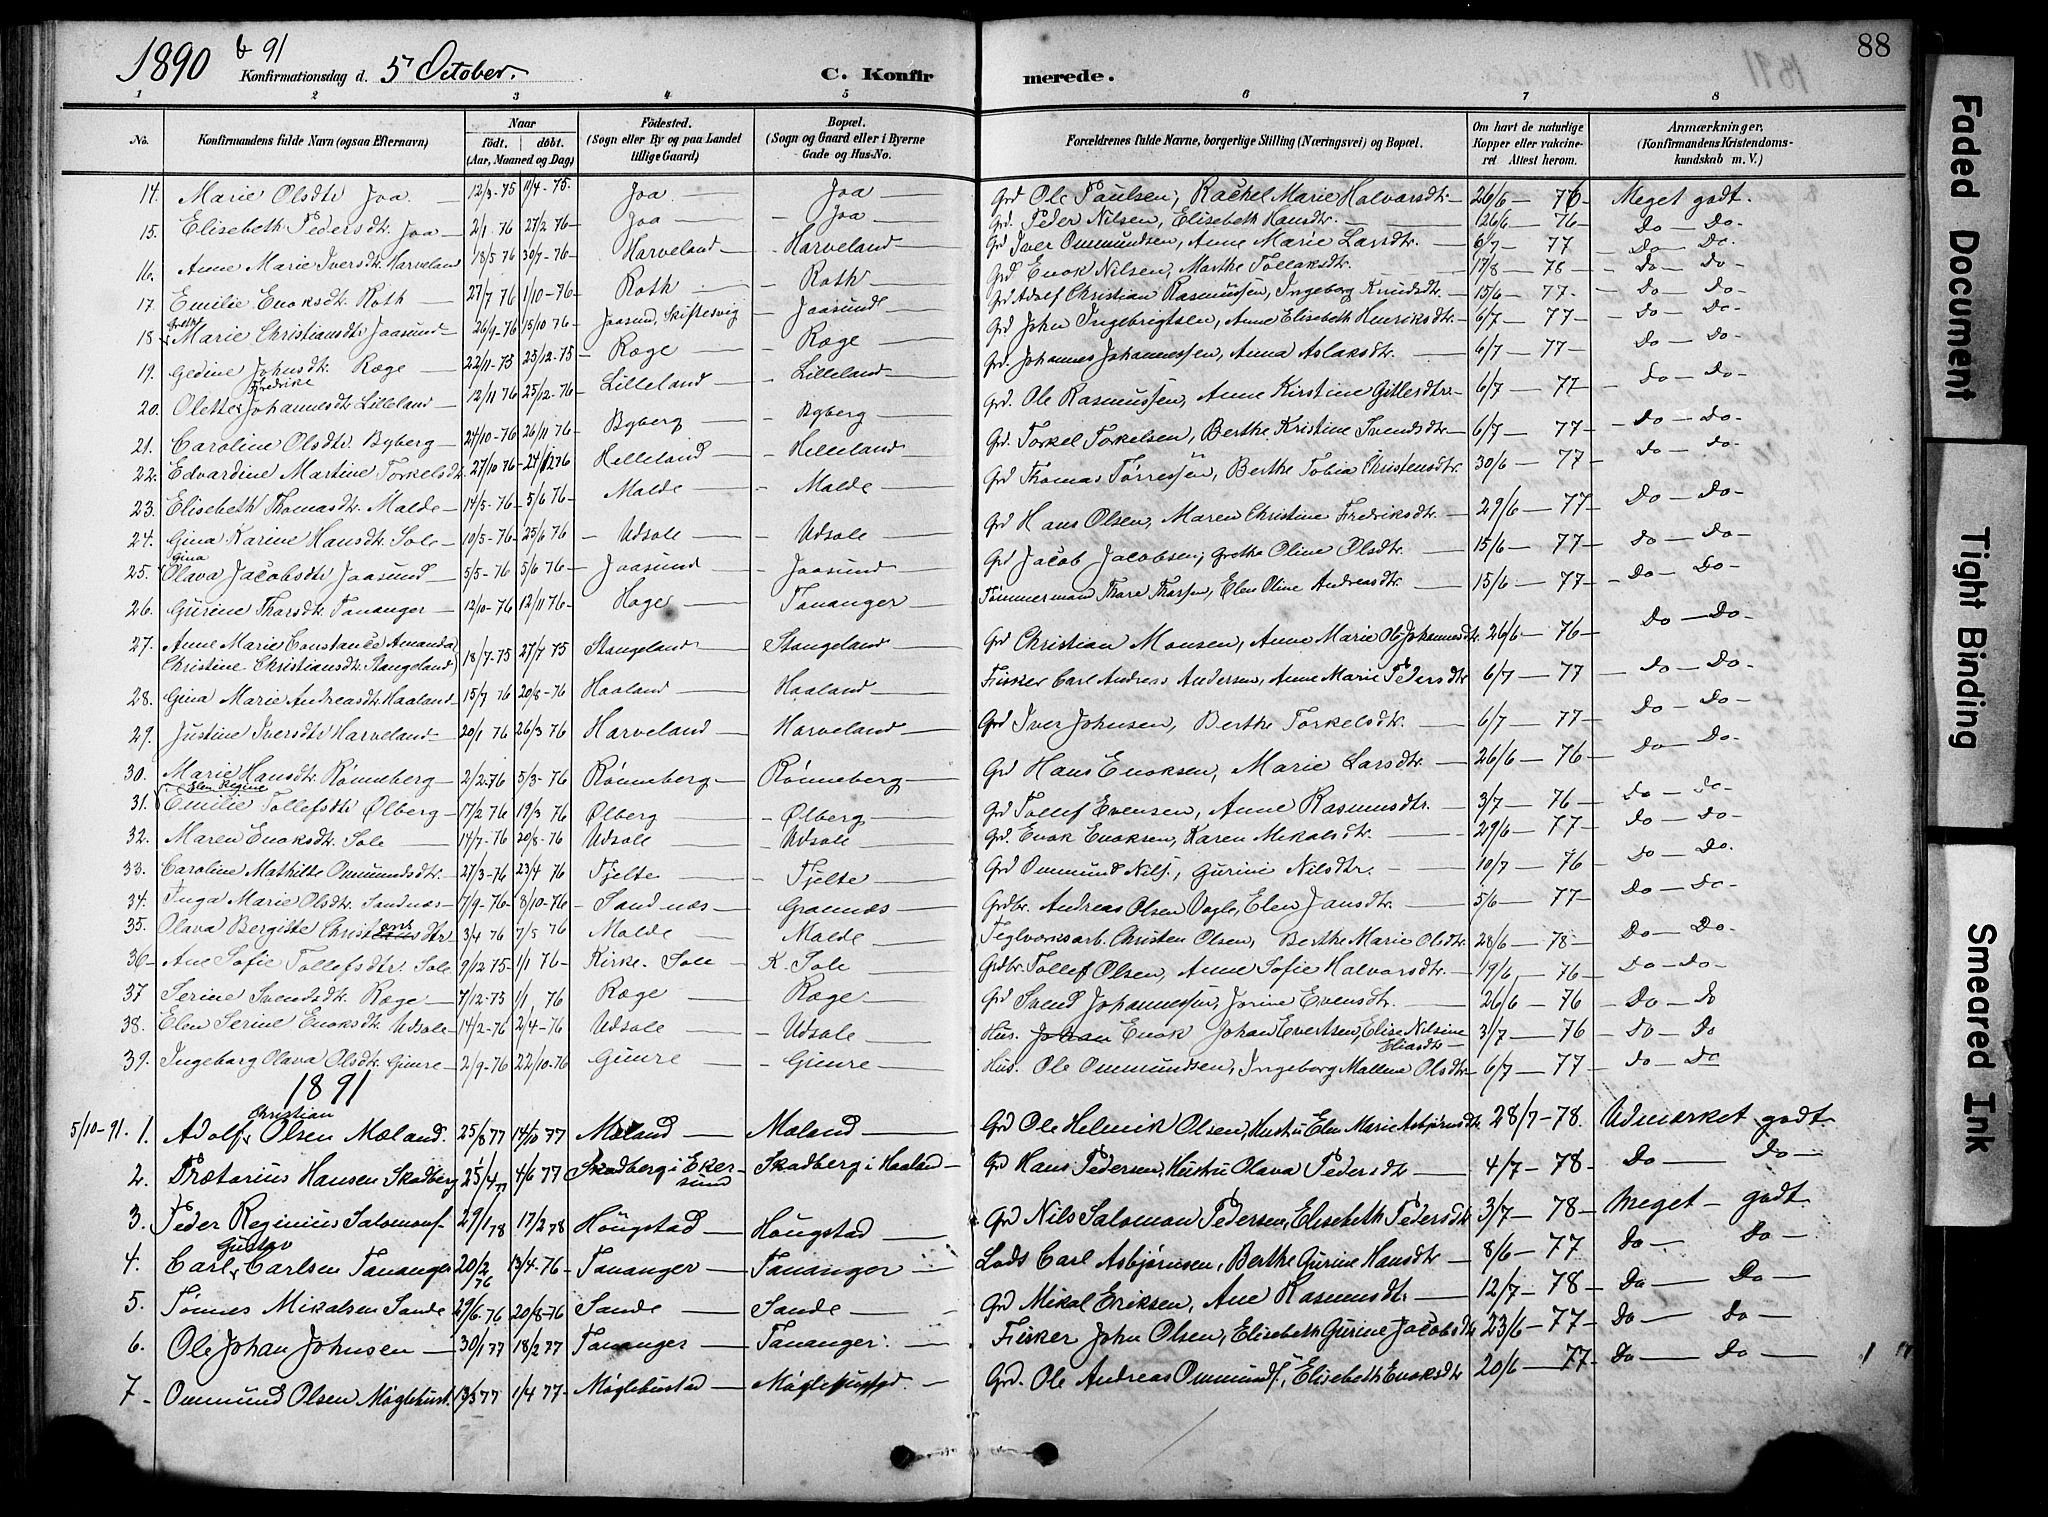 1890 & 91 Konfirmationsdag d. 5 October. C. Konfirmerede. 88
1 2 3 4 5 6 7 8
No. Konfirmandens fulde Navn (ogsaa Efternavn) Naar født. døbt. (Aar, Maaned og Dag) Fødested. (Sogn eller By og paa Landet tillige Gaard) Bopæl. (Sogn og Gaard eller i Byerne Gade og Hus-No. Forældrenes fulde Navne, borgerlige Stilling (Næringsvei) og Bopæl. Om havt de naturlige Kopper eller vakcineret Attest herom. Anmærkninger. (Konfirmandens Kristendomskundskab m. V.)
14. Marie Olsdtr Joa 12/3-75 11/4-75. Joa Joa Grd Ole Paulsen, Rachel Marie Halvorsdtr. 26/6 - 76 Meget godt.
15. Elisebeth Pedersdtr. Joa 2/1 76 27/2 76 Joa Joa Grd. Peder Nilsen, Elisebeth Hansdtr. 26/6 - 76 Do - Do.
16. Anne Marie Iversdtr. Harveland 18/5 76 30/7-76 Harveland Harveland Grd Iver Ommundsen, Anne Marie Larsdtr. 6/7 77 Do - Do.
17. Emilie Enoksdtr. Roth 27/7 76 1/10-76 Roth Roth Grd Enok Nilsen, Marthe Tollaksdtr. 17/8 - 78 Do - Do
18 Grethe Marie Christiansdtr Jaasund 26/9-76 15/10 76 Jaasund, Skiftesvig Jaasund Grd Adolf Christian Rasmussen, Ingeborg Knudsdtr. 15/6 - 77 Do - Do
19. Gedine Johnsdtr. Ræge 22/11-75 25/12-75 Ræge Ræge Grd John Ingebrigtsen, Anne Elisebeth Henriksdtr. 6/7 - 77 Do - Do
20. Olette Fredrike Johannesdtr Lilleland 12/11 76 25/12-76 Lilleland Lilleland Grd. Johannes Johannessen, Anna Aslaksdtr. 6/7 - 77 Do - Do
21. Caroline Olsdtr Byberg 24/10-76 26/11 76 Byberg Byberg Grd. Ole Rasmussen, Anne Kirstine Gitlesdtr. 6/7 - 77 Do - Do
22. Edvardine Martine Torkelsdtr. 27/10 76 24/12 76 Helleland Helleland Grd. Torkel Torkelsen, Berthe Kristine Svendsdtr. 6/7 - 77 Do - Do
23. Elisebeth Thomasdtr. Malde 14/5-76 5/6 76 Malde Malde Grd Thomas Tørressen, Berthe Tobia Christensdtr. 30/6 - 77 Do - Do
24. Gina Karine Hansdtr. Sole 10/5-76 25/6 76 Udsole Udsole Grd Hans Olsen, Maren Christine Fredriksdtr. 29/6 - 77 Do - Do
25. Gina Olava Jacobsdtr Jaasund 5/5-76 5/6 76 Jaasund Jaasund Grd Jacob Jacobsen, Grethe Oline Olsdtr. 15/6 - 77 Do - Do
26. Gurine Tharsdtr Tananger 12/10-76 12/11 76 Hage Tananger Tømmermand Thore Thorsen, Elen Oline Andreasdtr. 15/6 - 77 Do - Do
27. Anne Marie Constance Amanda
Christine Christiansdtr. Stangeland) 18/7-75 27/7 75 Stangeland Stangeland Grd Christian Monsen, Anne Marie Johannesdtr. 26/6 - 76 Do - Do
28. Gina Marie Andreasdtr. Haaland 15/7 76 20/8-76 Haaland Haaland Fisker Carl Andreas Andersen, Anne Marie Pedersdtr 6/7 - 77 Do - Do
29. Justine Iversdtr Harveland 20/1 76 26/3 76 Harveland Harveland Grd Iver Johnsen, Berthe Torkelsdtr. 6/7 - 77 Do - Do
30. Marie Hansdtr. Rønneberg 2/2-76 5/3-76 Rønneberg Rønneberg Grd Hans Enoksen, Marie Larsdtr. 26/6 - 76 Do - Do
31. Elen Regine Emilie Tollefsdtr Ølberg 17/2 76 19/3 76 Ølberg Ølberg Grd Tollef Evensen, Anne Rasmusdtr. 3/7 - 76 Do - Do
32. Maren Enoksdtr. Sole 14/7-76 20/8-76 Udsole Udsole Grd. Enok Enoksen, Karen Mikalsdtr. 29/6 - 77 Do - Do
33. Caroline Mathilte Ommundsdtr. 27/3-76 23/4 76 Tjelte Tjelte Grd Ommund Nils., Gurine Nilsdtr. 10/7 - 76 Do - Do.
34. Inga Marie Olsdtr. Sandnæs 7/9-76 8/10-76 Sandnæs Grannæs Grdbr. Andreas Olsen Vagle, Elen Jansdtr. 5/6 - 77 Do - Do
35. Olava Bergitte Christensdtr 3/4 76 7/5 76 Malde Malde Teglværksarb. Christen Olsen, Berthe Marie Olsdtr 28/6 - 78 Do - Do
36 Ane Sofie Tollefsdtr. Sole 9/12 75 1/1 76 Kirke-Sole K. Sole Grdbr. Tollef Olsen, Anne Sofie Halvorsdtr. 19/6 - 76 Do - Do
37 Serine Svendsdtr. Ræge 7/12-75 1/1, 76 Ræge Ræge Grd Svend Johannessen, Jorine Evensdtr. 26/6 - 76 Do - Do
38. Elen Serine Enoksdtr. Udsole 14/2-76 2/4-76 Udsole Udsole Hus. Johan Enok Johan Evertsen, Elise Nilsine Eliasdtr 3/7 - 76 Do - Do
39. Ingeborg Olava Olsdtr. Gimre 2/9-76 22/10-76 Gimre Gimre Hus. Ole Ommundsen, Ingeborg Mallene Olsdtr 6/7 - 77 Do - Do
1891
5/10-91. 1. Adolf Christian Olsen Mæland. 25/8 77 14/10 77 Mæland Mæland Grd Ole Helmik Olsen, Hustru Elen Marie Asbjørnsdtr 28/7-78. Udmærket godt
2. Prætorius Hansen Skadberg 25/4 77 4/6 77 Skadberg i Ekersund Skadberg i Haaland Grd Hans Pedersen, Hustru Olava Pedersdtr 4/7 - 78 Do Do
3. Peder Reginius Salomons. 29/1 78 17/2 78 Høugstad Høugstad Grd Nils Salomon Pedersen, Elisebeth Pedersdtr 3/7 - 78 Meget - godt
4. Carl Gustav Carlsen Tananger 20/2 76 13/4-76 Tananger Tananger Lods Carl Asbjørnsen, Berthe Gurine Hansdtr 8/6 - 77 Do Do
5. Tønnes Mikalsen Sande 29/6 76 20/8-76 Sande Sande Grd Mikal Eriksen, Ane Rasmusdtr 12/7 - 78 Do Do
6. Ole Johan Johnsen 30/1 77 18/2 77 Tananger Tananger. Fisker John Olsen, Elisebeth Gurine Jacobsdtr 23/6 - 77 Do Do
7 Ommund Olsen Møglehust. 13/3 77 1/4 77 Møglehustad Møglehustad. Grd. Ole Andreas Ommunds., Elisebeth Enoksdtr 20/6 - 77 Do Do
Faded Document
Tight Binding
Smeared Ink